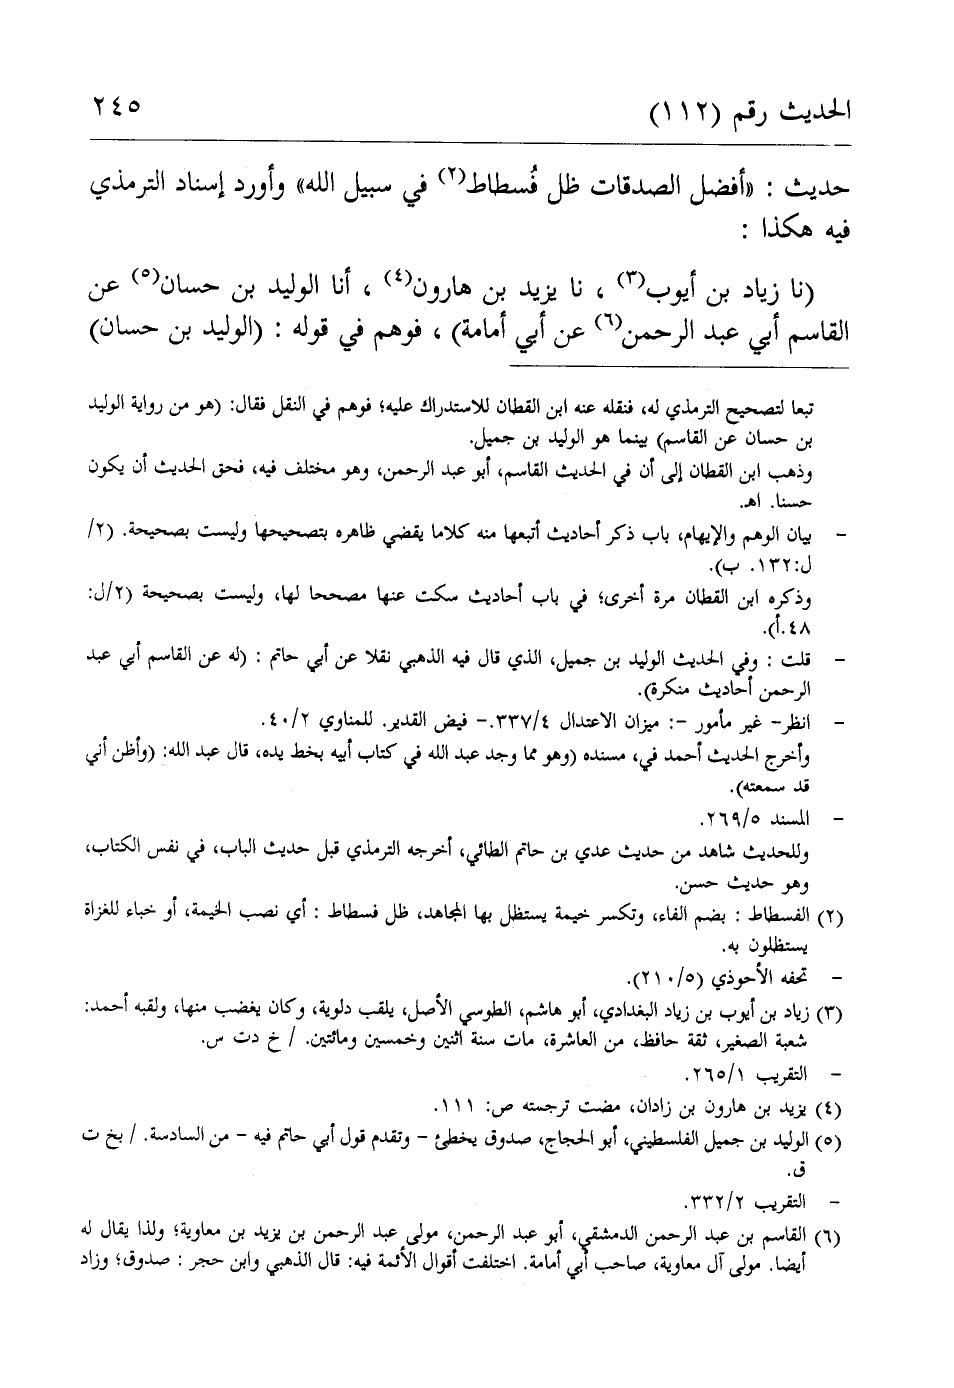 الحديث رقم (١١٢) ٢٤٥
حديث : «أفضل الصدقات ظل فُسطاط(٢) في سبيل الله» وأورد إسناد الترمذي
فيه هكذا :
(نا زياد بن أيوب(٣) ، نا يزيد بن هارون(٤) ، أنا الوليد بن حسان(٥) عن
القاسم أبي عبد الرحمن(٦) عن أبي أمامة) ، فوهم في قوله : (الوليد بن حسان)
تبعا لتصحيح الترمذي له، فنقله عنه ابن القطان للاستدراك عليه؛ فوهم في النقل فقال: (هو من رواية الوليد
بن حسان عن القاسم) بينما هو الوليد بن جميل.
وذهب ابن القطان إلى أن في الحديث القاسم، أبو عبد الرحمن، وهو مختلف فيه، فحق الحديث أن يكون
حسنا. اهـ.
- بيان الوهم والإيهام، باب ذكر أحاديث أتبعها منه كلاما يقضي ظاهره بتصحيحها وليست بصحيحة. (٢/
ل:١٣٢. ب).
وذكره ابن القطان مرة أخرى؛ في باب أحاديث سكت عنها مصححا لها، وليست بصحيحة (٢/ل:
٤٨.أ).
- قلت : وفي الحديث الوليد بن جميل، الذي قال فيه الذهبي نقلا عن أبي حاتم : (له عن القاسم أبي عبد
الرحمن أحاديث منكرة).
- انظر- غير مأمور -: ميزان الاعتدال ٣٣٧/٤.- فيض القدير. للمناوي ٤٠/٢.
وأخرج الحديث أحمد في، مسنده (وهو مما وجد عبد الله في كتاب أبيه بخط يده، قال عبد الله: (وأظن أني
قد سمعته).
- المسند ٢٦٩/٥.
وللحديث شاهد من حديث عدي بن حاتم الطائي، أخرجه الترمذي قبل حديث الباب، في نفس الكتاب،
وهو حديث حسن.
(٢) الفسطاط : بضم الفاء، وتكسر خيمة يستظل بها المجاهد، ظل فسطاط : أي نصب الخيمة، أو خباء للغزاة
يستظلون به.
- تحفه الأحوذي (٢١٠/٥).
(٣) زياد بن أيوب بن زياد البغدادي، أبو هاشم، الطوسي الأصل، يلقب دلوية، وكان يغضب منها، ولقبه أحمد:
شعبة الصغير، ثقة حافظ، من العاشرة، مات سنة اثنين وخمسين ومائتين. / خ دت س.
- التقريب ٢٦٥/١.
(٤) يزيد بن هارون بن زادان، مضت ترجمته ص: ١١١.
(٥) الوليد بن جميل الفلسطيني، أبو الحجاج، صدوق يخطئ - وتقدم قول أبي حاتم فيه - من السادسة. / بخ ت
ق.
- التقريب ٣٣٢/٢.
(٦) القاسم بن عبد الرحمن الدمشقي، أبو عبد الرحمن، مولى عبد الرحمن بن يزيد بن معاوية؛ ولذا يقال له
أيضا. مولى آل معاوية، صاحب أبي أمامة. اختلفت أقوال الأئمة فيه: قال الذهبي وابن حجر : صدوق؛ وزاد